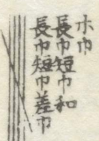 木巾
長巾短巾和
長巾短巾差巾